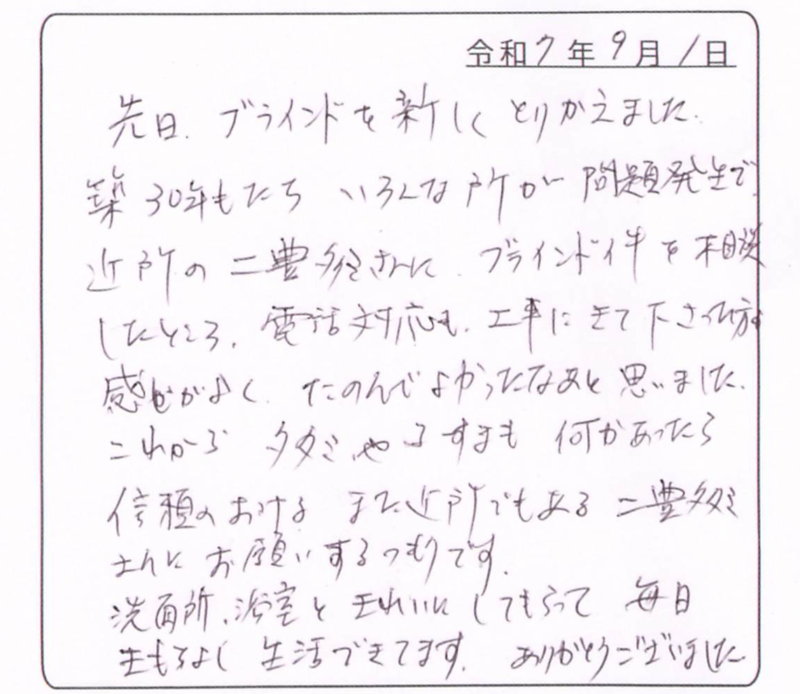 令和7年9月1日
先日、ブラインドを新しくとりかえました。
築30年もたち いろんな所が問題発生で、
近所の二豊タタミさんに、ブラインド件を相談
したところ、電話対応も、工事にきて下さった方も
感じがよく、たのんでよかったなあと思いました。
これから タタミやふすまも 何かあったら
信頼のおける また近所でもある 二豊タタミ
さんに お願いするつもりです。
洗面所、浴室と きれいにしてもらって 毎日
きもちよく 生活できてます。ありがとうございました